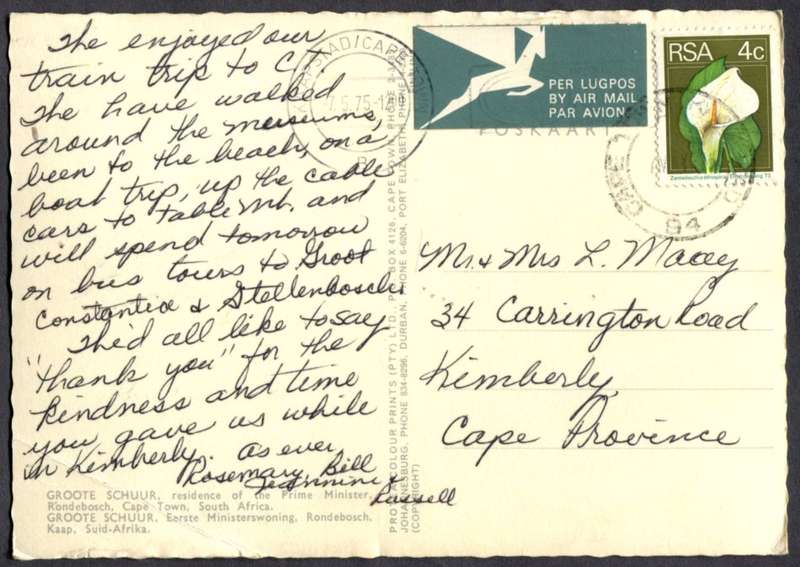 The enjoyed our
train trip to C.T.
The have walked
around the museums,
been to the beach, on a
boat trip, up the cable
cars to Table Mt. and
will spend tomorrow
on bus tours to Groot
Constantia & Stellenbosch.
The'd all like to say
"thank you" for the
kindness and time
you gave us while
in Kimberly. As ever,
Rosemary, Bill
Jeannine &
Russell
GROOTE SCHUUR, residence of the Prime Minister,
Rondebosch, Cape Town, South Africa.
GROOTE SCHUUR, Eerste Ministerswoning, Rondebosch,
Kaap, Suid-Afrika.
COLOUR PRINTS (PTY) LTD., P.O. BOX 4124, CAPE TOWN, PHONE
JOHANNESBURG, PHONE 834-8296, DURBAN, PHONE 6-6204, PORT ELIZABETH, PHONE
(COPYRIGHT)
KAAPSTAD/CAPE
7.5.75
PER LUGPOS
BY AIR MAIL
PAR AVION
POSKAART
RSA 4c
Zantedeschia aethiopica
94
Mr. & Mrs L. Macey
34 Carrington Road
Kimberly
Cape Province